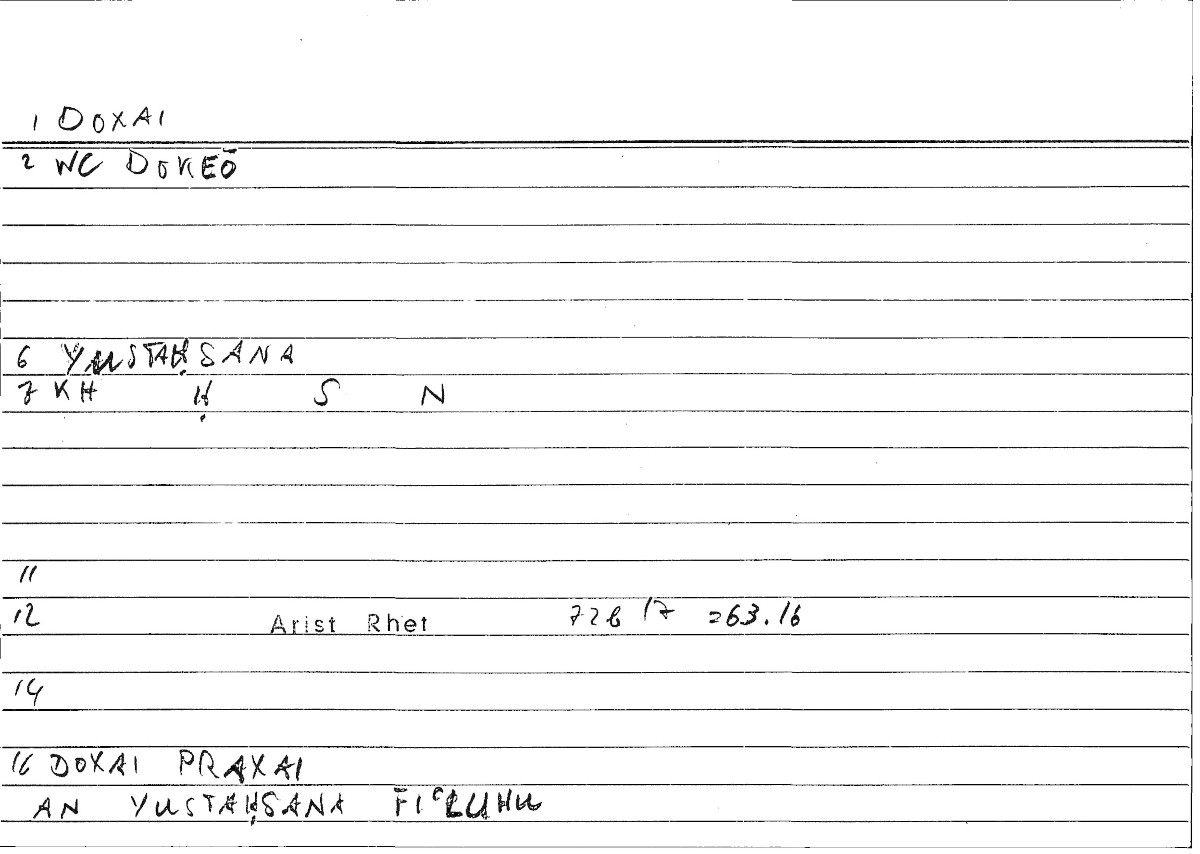 1 DOXAI
2 WC DOKEŌ
6 YUSTAḤSANA
7 KH Ḥ S N
11
12 Arist Rhet 72b 17 =63.16
14
16 DOXAI PRAXAI
AN YUSTAḤSANA FIʿLUHU